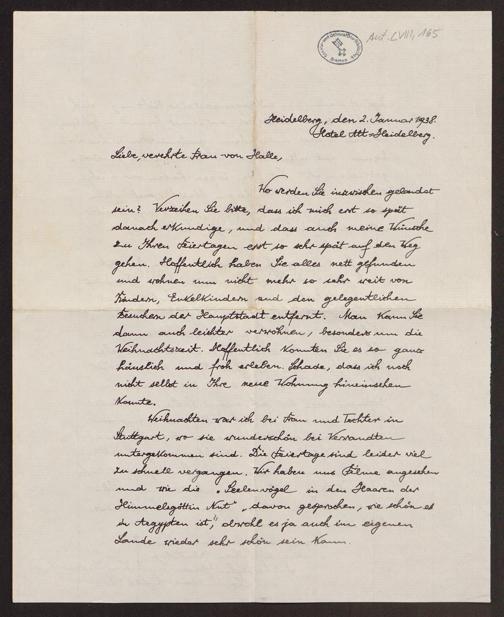 Aut. LVIII, 165
Heidelberg, den 2. Januar 1938.
Hotel Alt-Heidelberg.
Liebe, verehrte Frau von Halle,
Wo werden Sie inzwischen gelandet
sein? Verzeihen Sie bitte, dass ich mich erst so spät
danach erkundige, und dass auch meine Wünsche
zu Ihren Feiertagen erst so sehr spät auf den Weg
gehen. Hoffentlich haben Sie alles nett gefunden
und wohnen nun nicht mehr so sehr weit von
Kindern, Enkelkindern und den gelegentlichen
Besuchern der Hauptstadt entfernt. Man kann Sie
dann auch leichter verwöhnen, besonders um die
Weihnachtszeit. Hoffentlich konnten Sie es so ganz
häuslich und froh erleben. Schade, dass ich noch
nicht selbst in Ihre neue Wohnung hineinsehen
konnte.
Weihnachten war ich bei Frau und Tochter in
Stuttgart, wo sie wunderschön bei Verwandten
untergekommen sind. Die Feiertage sind leider viel
zu schnell vergangen. Wir haben uns Filme angesehen
und wie die „Seelenvögel in den Haaren der
Himmelsgöttin Nut" „davon gesprochen, wie schön es
in Aegypten ist", obwohl es ja auch im eigenen
Lande wieder sehr schön sein kann.